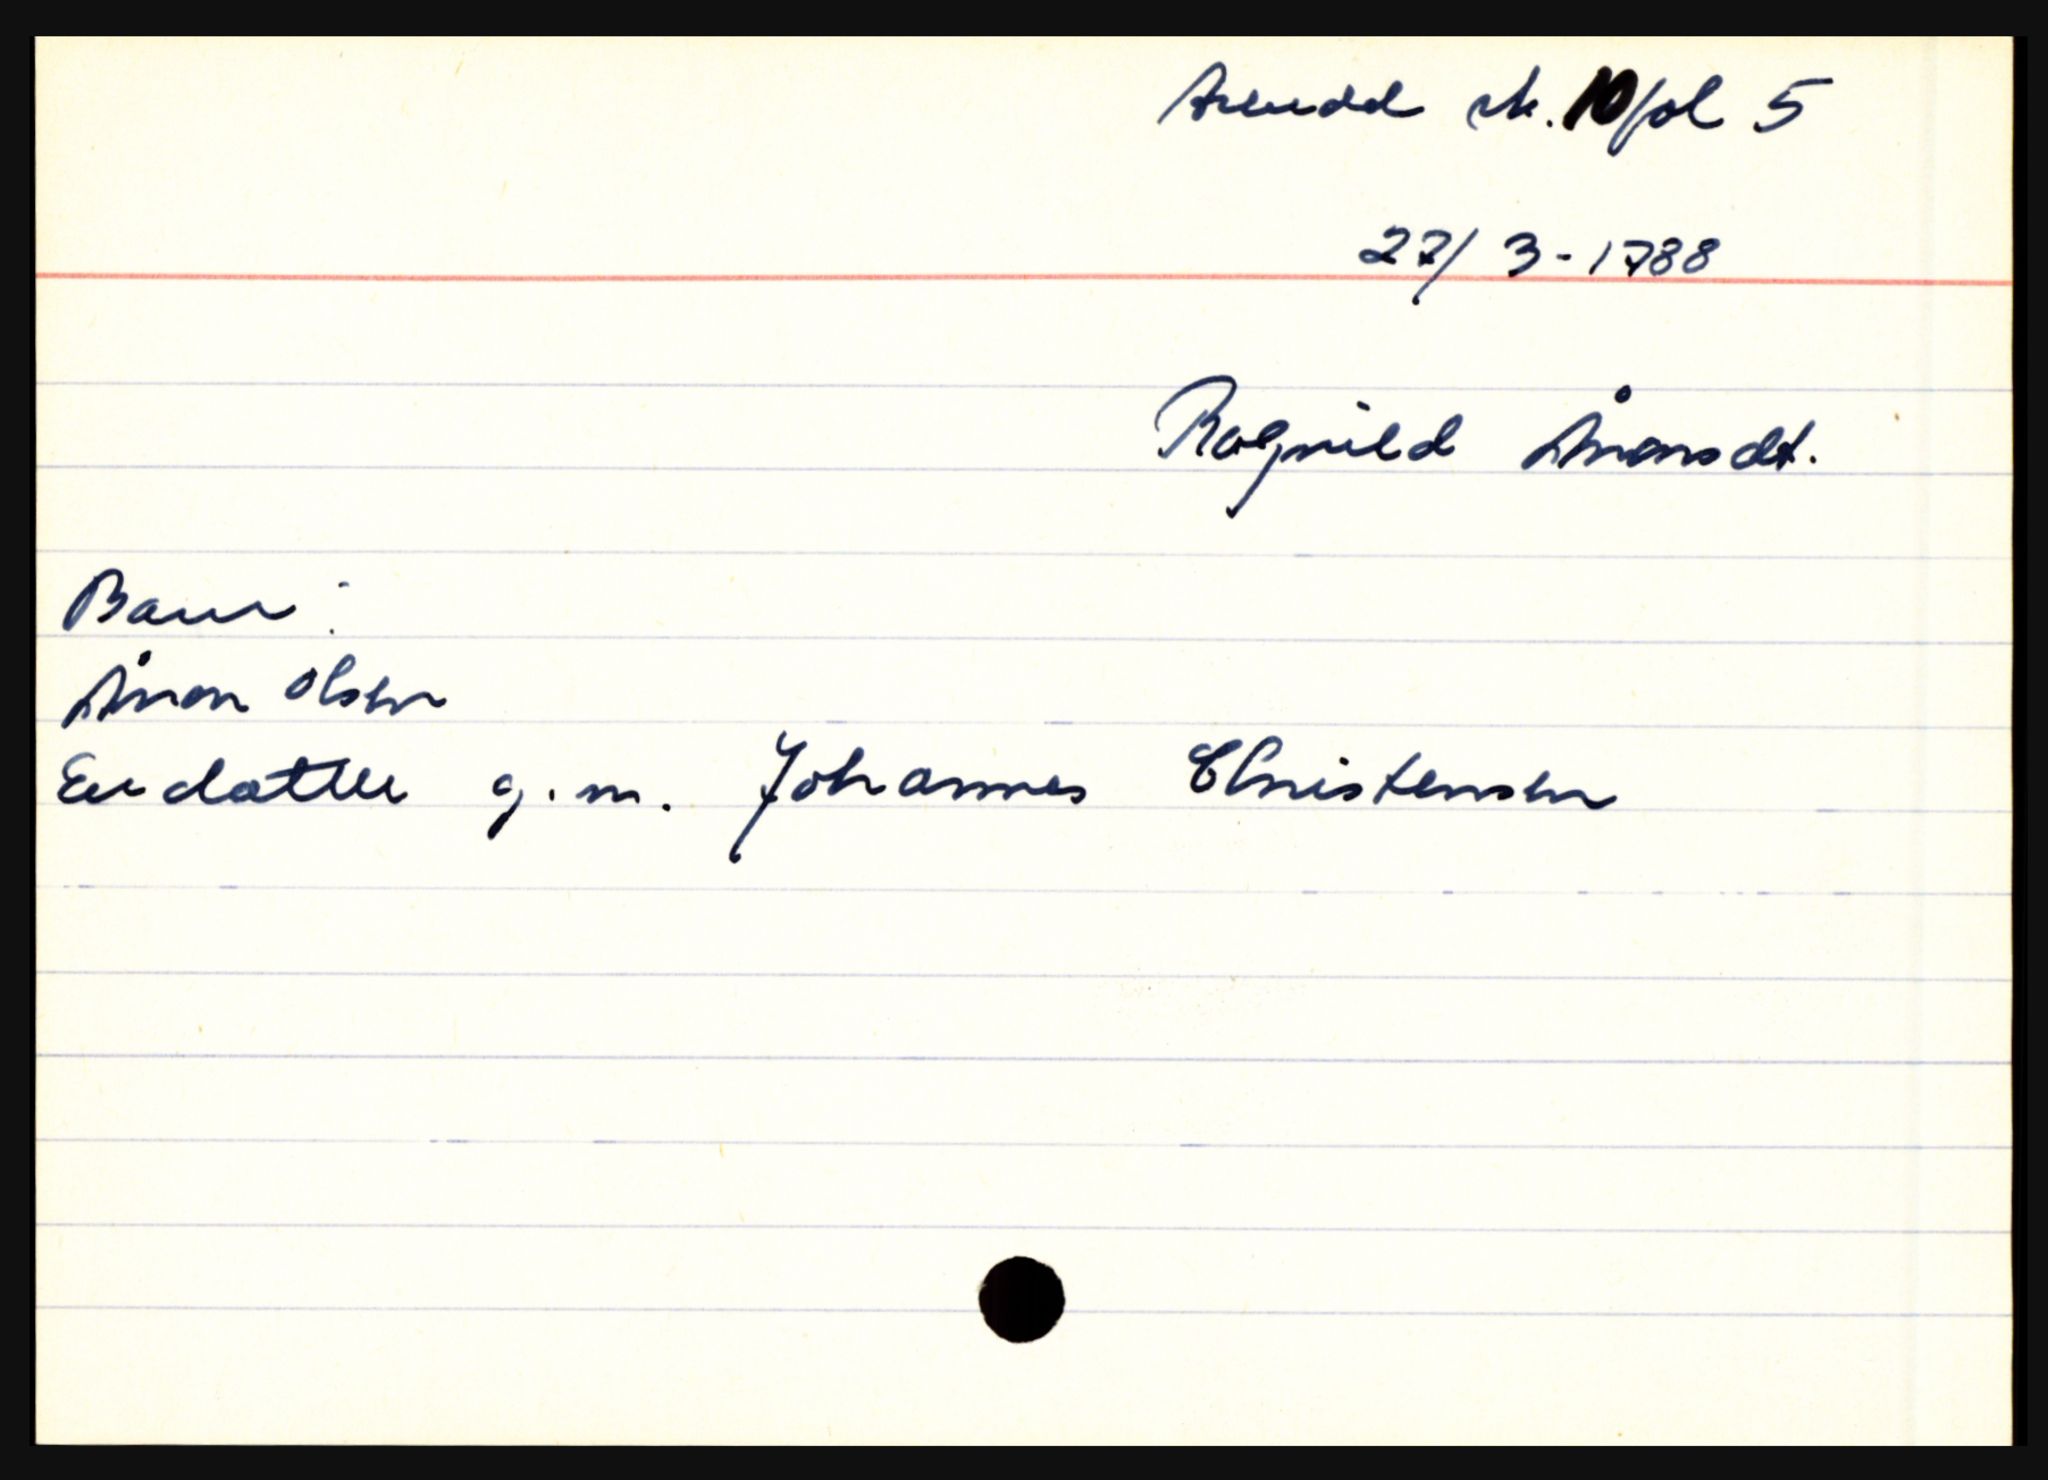 Arendal sk. 10 fol 5
27/3-1788
Ragnild Ånonsdt.
Barn:
Ånon Olsen
En datter g.m. Johannes Christensen